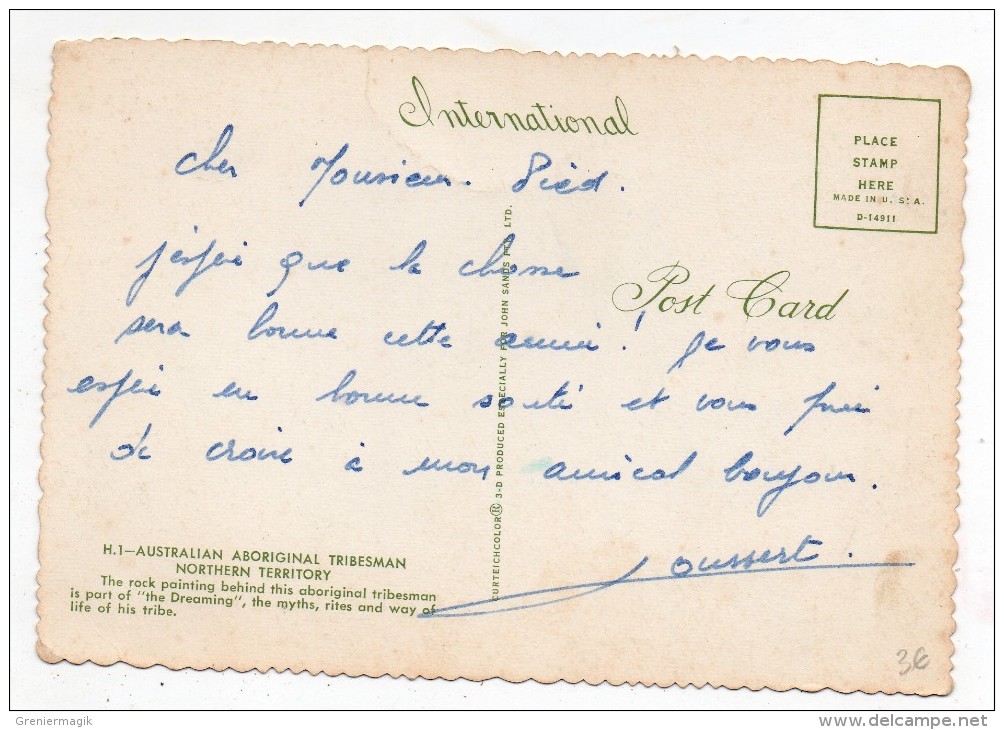 International
PLACE
STAMP
HERE
MADE IN U. S. A.
D-14911
Cher Monsieur.
j'espère que la chasse
Post Card
sera bonne cette année! Je vous
espère en bonne santé et vous prie
de croire à mon amical bonjour.
oussert.
H.1—AUSTRALIAN ABORIGINAL TRIBESMAN
NORTHERN TERRITORY
The rock painting behind this aboriginal tribesman
is part of "the Dreaming", the myths, rites and way of
life of his tribe.
CURTEICHCOLOR® 3-D PRODUCED ESPECIALLY FOR JOHN SANDS PTY. LTD.
36
Greniermagik
delcampe.net